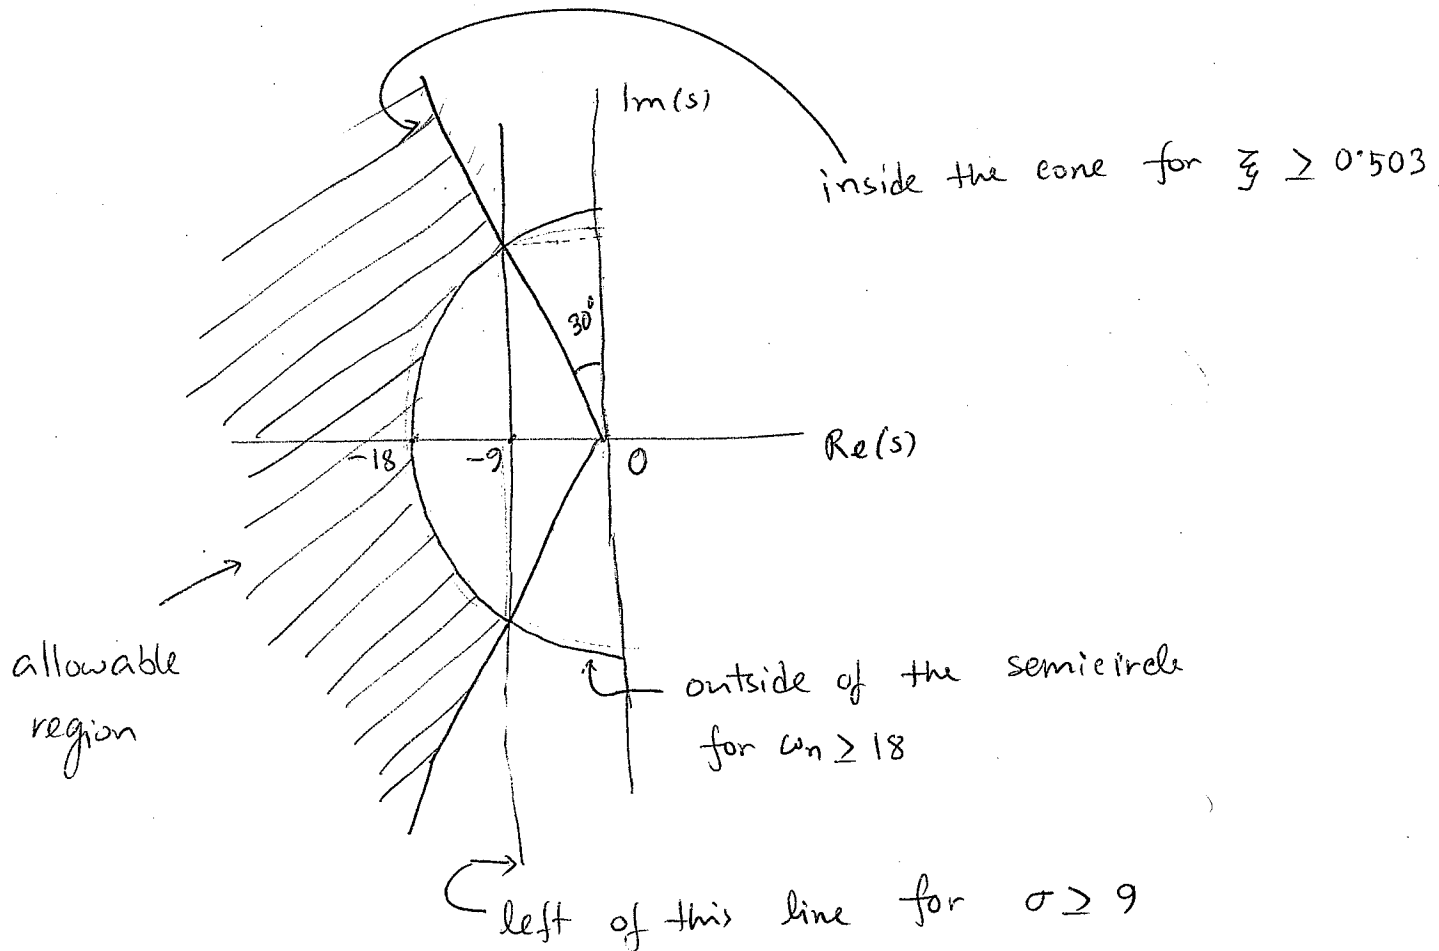 Im(s)
inside the cone for ξ ≥ 0.503
30°
-18
-9
0
Re(s)
allowable
region
outside of the semicircle
for ωn ≥ 18
left of this line for σ ≥ 9